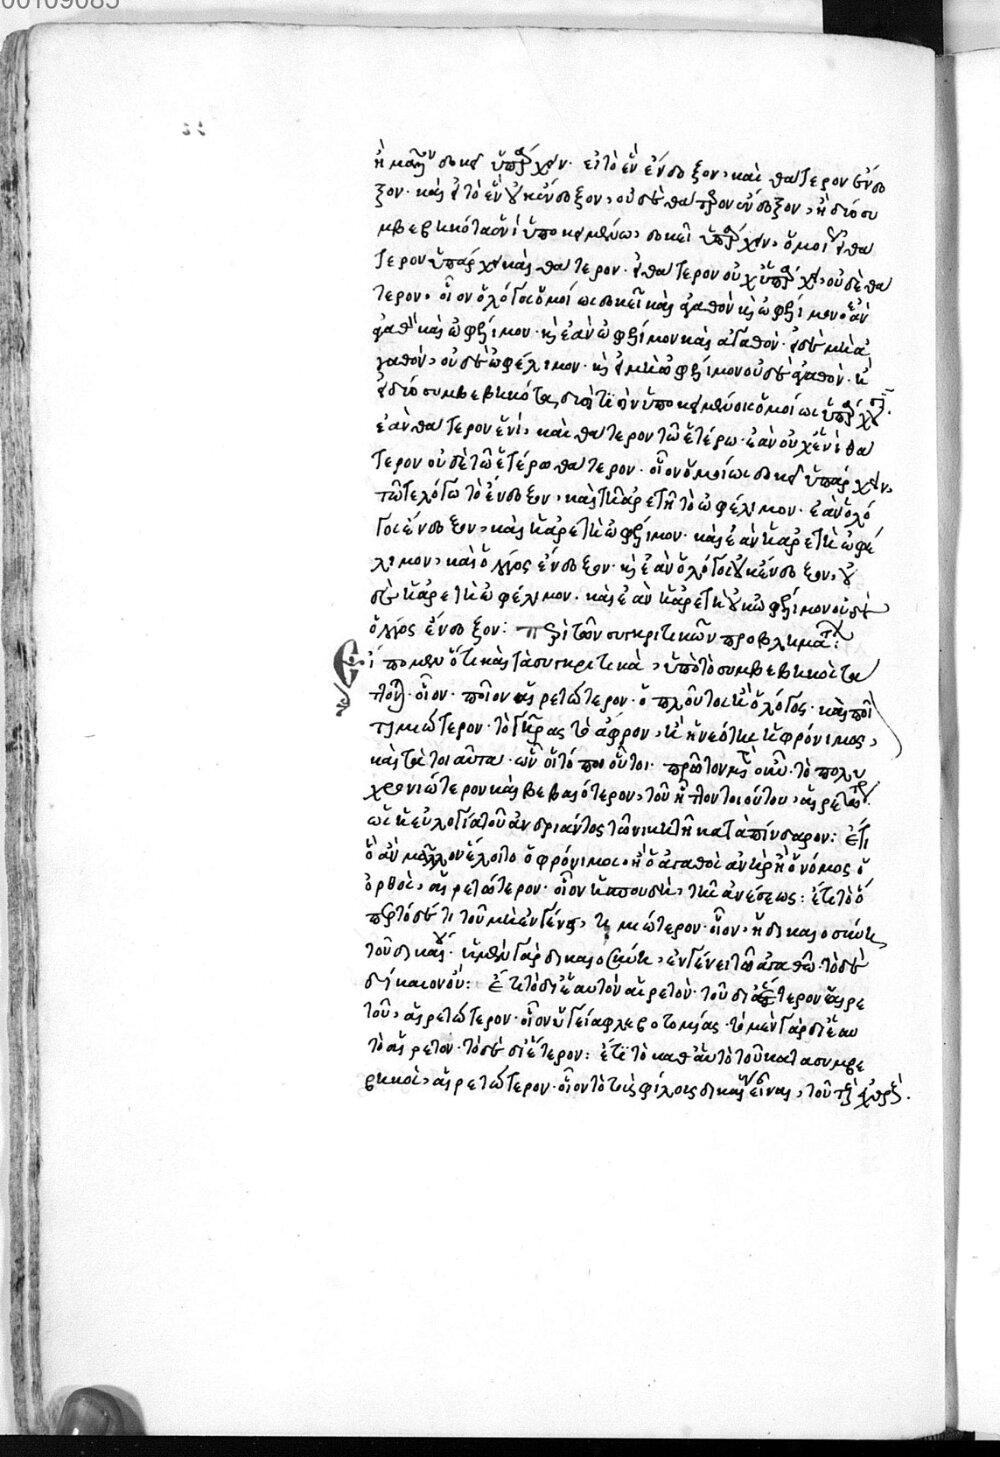 00109085
ἢ μᾶλλον δοκεῖ ὑπάρχειν. εἰ τὸ ἓν ἔνδοξον, καὶ θάτερον ἔνδο
ξον. καὶ εἰ τὸ ἓν οὐκ ἔνδοξον, οὐδὲ θάτερον ἔνδοξον, ἢ δύο συ
μβεβηκότα ἑνὶ ὑποκειμένω, δοκεῖ ὑπάρχειν, ὁμοίως εἰ θά
τερον ὑπάρχει καὶ θάτερον. εἰ θάτερον οὐχ ὑπάρχει, οὐδὲ θά
τερον. οἷον ὁ λόγος ὁμοίως δοκεῖ καὶ ἀγαθὸν καὶ ὠφέλιμον. ἐὰν
ἀγαθὸν καὶ ὠφέλιμον. καὶ ἐὰν ὠφέλιμον καὶ ἀγαθόν. εἰ δὲ μὴ ἀ
γαθὸν, οὐδὲ ὠφέλιμον. καὶ εἰ μὴ ὠφέλιμον οὐδὲ ἀγαθὸν. καὶ
εἰ δύο συμβεβηκότα, δυσὶ ὑποκειμένοις ὁμοίως ὑπάρχει
ἐὰν θάτερον ἑνὶ, καὶ θάτερον τῶ ἑτέρω. ἐὰν οὐχ ἑνὶ θά
τερον οὐδὲ τῶ ἑτέρω θάτερον. οἷον ὁμοίως δοκεῖ ὑπάρχειν,
τῶ τε λόγω τὸ ἔνδοξον, καὶ τῆ ἀρετῆ τὸ ὠφέλιμον. ἐὰν ὁ λό
γος ἔνδοξον, καὶ ἡ ἀρετὴ ὠφέλιμον. καὶ ἐὰν ἡ ἀρετὴ ὠφέ
λιμον, καὶ ὁ λόγος ἔνδοξον. καὶ ἐὰν ὁ λόγος οὐκ ἔνδοξον, οὐ
δὲ ἡ ἀρετὴ ὠφέλιμον. καὶ ἐὰν ἡ ἀρετὴ οὐκ ὠφέλιμον οὐδὲ
ὁ λόγος ἔνδοξον: περὶ τῶν συγκριτικῶν προβλημάτων:
Εἴπομεν ὅτι καὶ τὰ συγκριτικὰ, ὑπὸ τὸ συμβεβηκὸς τε
λοῦσι. οἷον. ποῖον αἱρετώτερον. ὁ πλοῦτος ἢ ὁ λόγος. καὶ ποῖον
τιμιώτερον. τὸ γῆρας τὸ ἄφρον, ἢ ἡ νεότης ἡ φρόνιμος,
καὶ τὰ τοιαῦτα. ὧν οἱ τόποι οὗτοι. πρῶτον τὸ πολυ
χρονιώτερον καὶ βεβαιότερον, τοῦ ἧττον τοιούτου, αἱρετώτερον.
ὡς ἡ εὐλογία τοῦ ἀνδριάντος τῶ νικητῆ κατὰ πίνδαρον: ἔτι
ὃ ἂν μᾶλλον ἕλοιτο ὁ φρόνιμος, ἢ ὁ ἀγαθὸς ἀνὴρ ἢ ὁ νόμος ὁ
ὀρθὸς, αἱρετώτερον. οἷον ἡ σπουδὴ, τῆς ἀνέσεως: ἔτι τὸ ὅ
περ τόδε τι τοῦ μὴ ἐν γένει, τιμιώτερον. οἷον, ἡ δικαιοσύνη
τοῦ δικαίου. ἡ μὲν γὰρ δικαιοσύνη, ἐν γένει τῶ ἀγαθῶ. τὸ δὲ
δίκαιον οὔ: ἔτι τὸ δι ἑαυτὸ αἱρετὸν. τοῦ δι ἕτερον αἱρε
τοῦ, αἱρετώτερον. οἷον ὑγεία φλεβοτομίας. τὸ μὲν γὰρ δι ἑαυ
τὸ αἱρετον. τὸ δὲ δι ἕτερον: ἔτι τὸ καθ αὑτὸ τοῦ κατα συμβε
βηκὸς, αἱρετώτερον. οἷον τὸ τοὺς φίλους δικαίους εἶναι, τοῦ τοὺς ἐχθρούς.